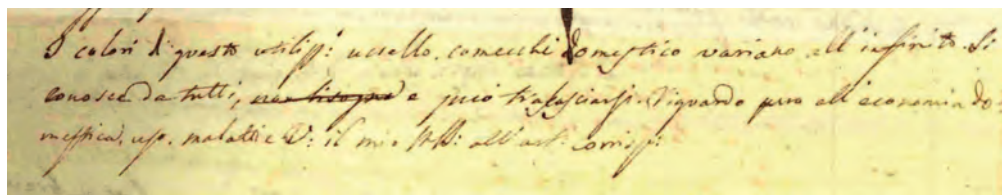 I colori di questo utiliss: uccello comecchè domestico variano all'infinito. Si
conosce da tutti, non bisogna e può tralasciarsi. Riguardo pure all'economia do-
mestica, uso, malattie V: il mio all'art: corrisp: